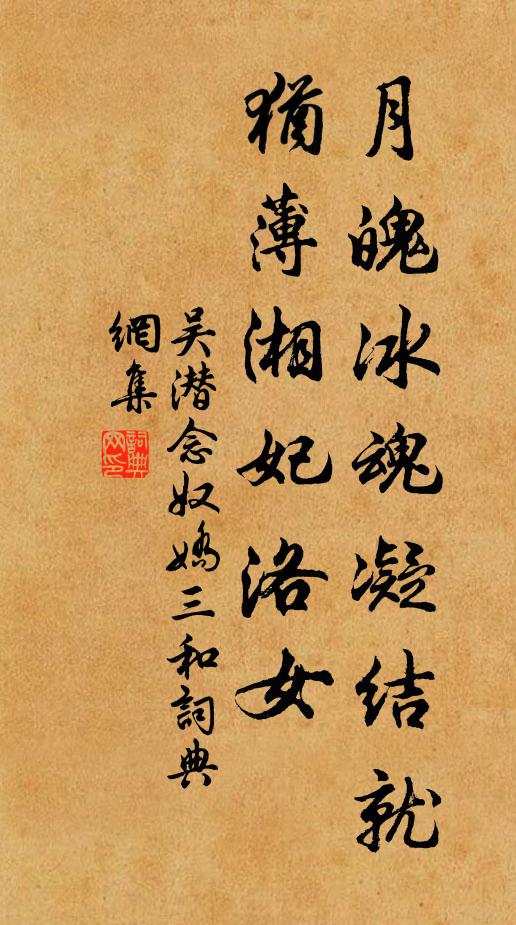 月魄冰魂凝结就
犹薄湘妃洛女
吴潜念奴嬌三和詞典
網集
詞典網印